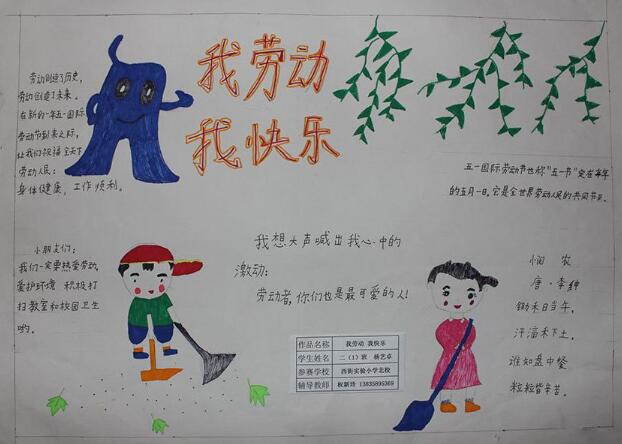 我劳动
我快乐
劳动创造了历史,
劳动创造了未来。
在新的一年五一国际
劳动节到来之际,
让我们祝福全天下
劳动人民:
身体健康,工作顺利。
五一国际劳动节也称“五一节”定在每年
的五月一日。它是全世界劳动人民的共同节日。
小朋友们:
我们一定要热爱劳动,
爱护环境 积极打
扫教室和校园卫生
哟。
我想大声喊出我心中的
激动:
劳动者,你们也是最可爱的人!
悯 农
唐·李绅
锄禾日当午,
汗滴禾下土。
谁知盘中餐
粒粒皆辛苦。
作品名称 我劳动 我快乐
学生姓名 二(1)班 杨艺卓
参赛学校 西街实验小学北校
辅导教师 权新玲 13835895369